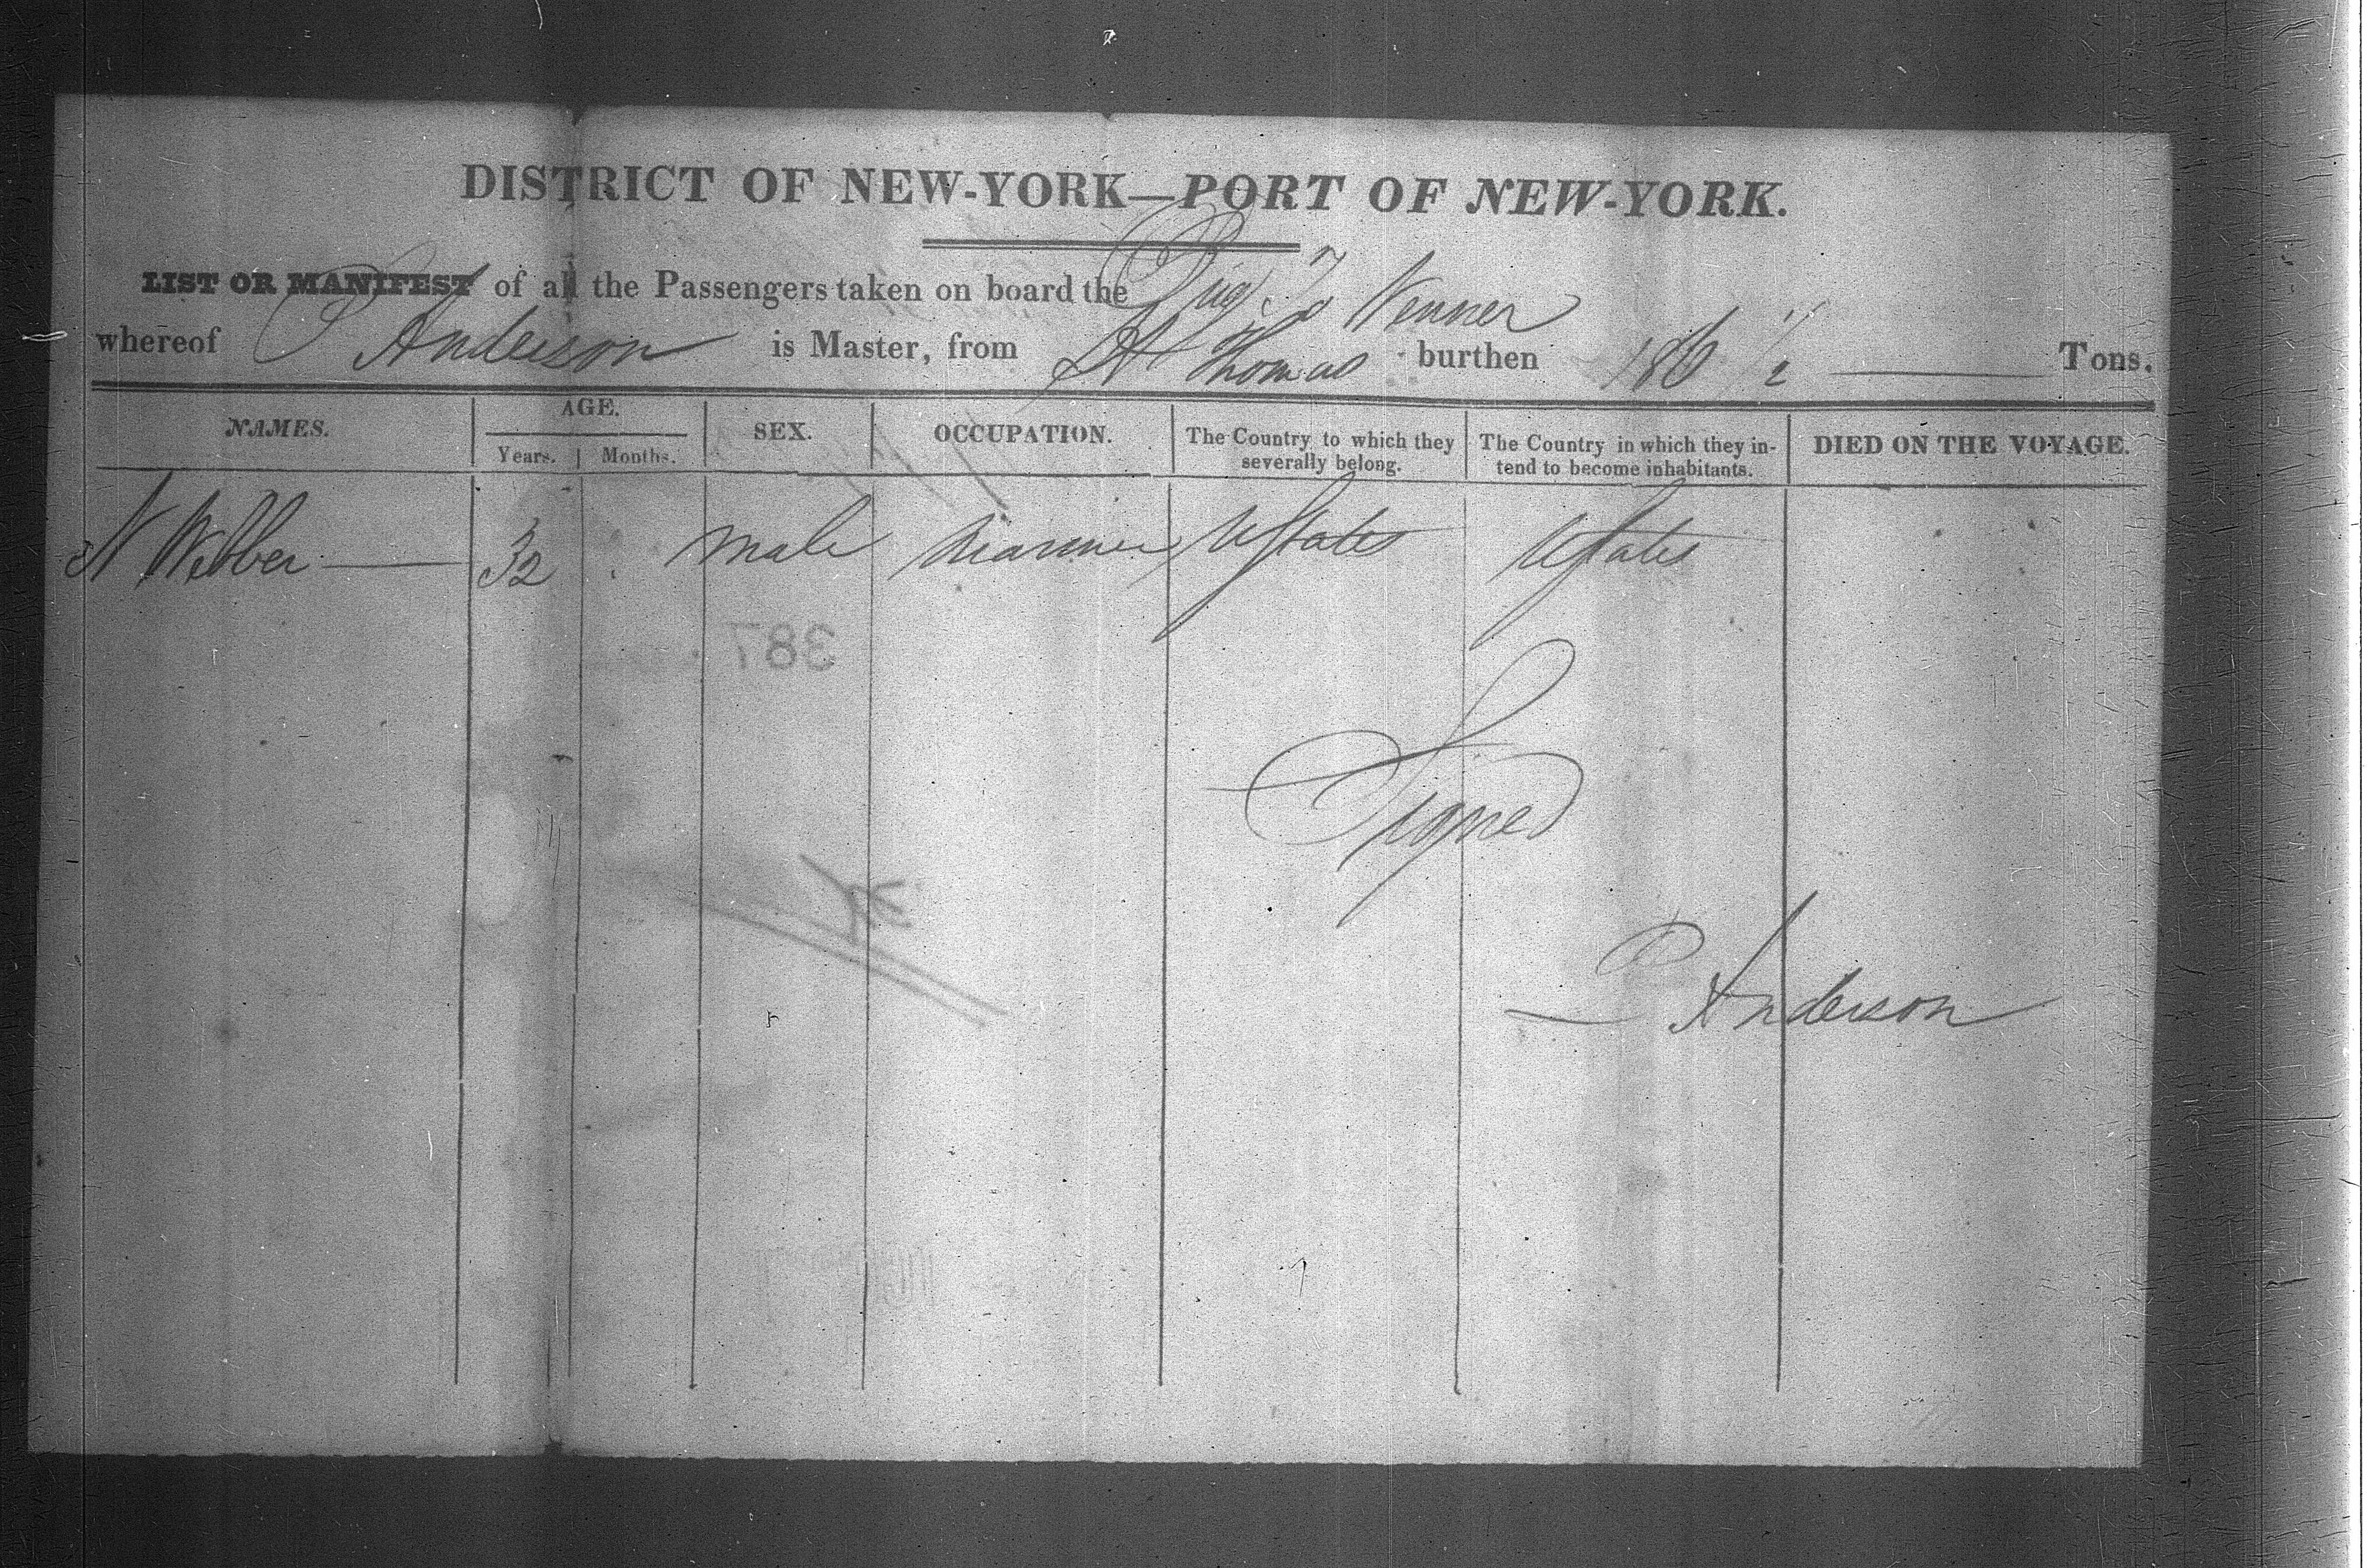 DISTRICT OF NEW-YORK—PORT OF NEW-YORK.
LIST OR MANIFEST of all the Passengers taken on board the Brig
whereof Anderson is Master, from St Thomas burthen 186 1/2 Tons.
NAMES. AGE. SEX. OCCUPATION. The Country to which they severally belong. The Country in which they intend to become inhabitants. DIED ON THE VOYAGE.
Years. Months.
N Webber 32 male Mariner UStates UStates
387
Signed
Anderson